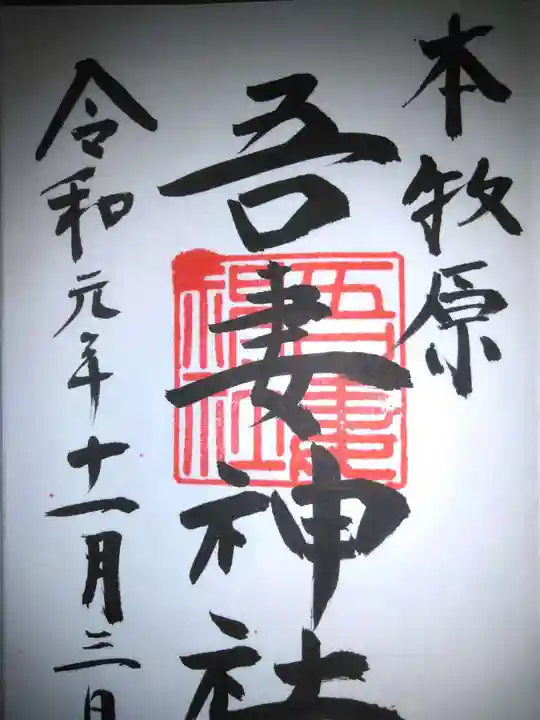 本牧原
吾妻神社
令和元年十一月三日
吾妻神社